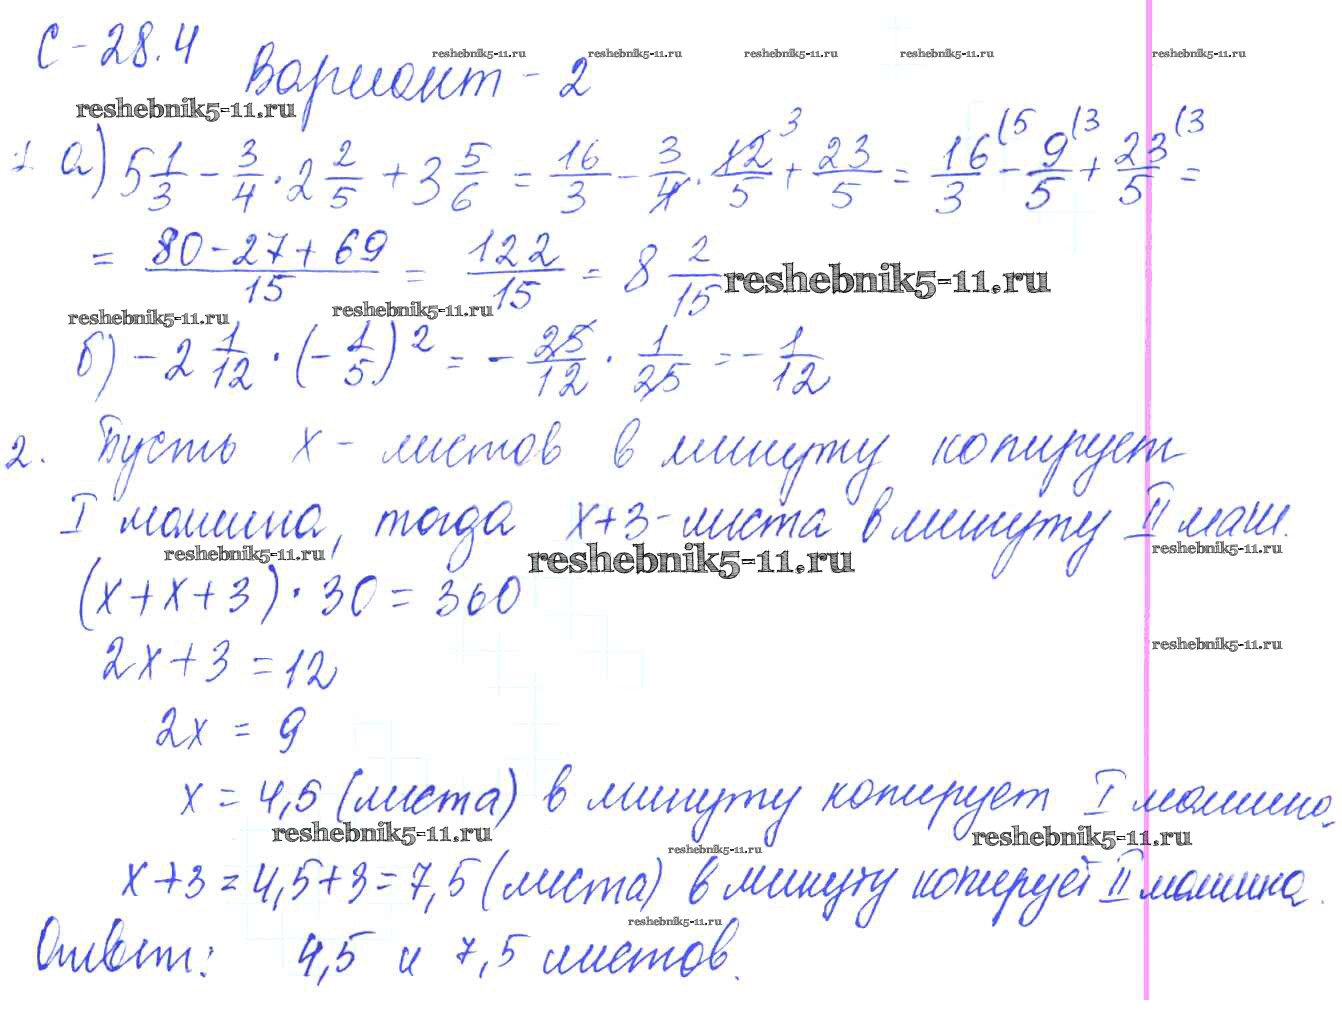 С-28.4
Вариант-2
reshebnik5-11.ru reshebnik5-11.ru reshebnik5-11.ru reshebnik5-11.ru reshebnik5-11.ru
reshebnik5-11.ru
1. а) 5 1/3 - 3/4 · 2 2/5 + 3 5/6 = 16/3 - 3/4 · 12/5 ³ + 23/5 = 16/3 (5 - 9/5 (3 + 23/5 (3 =
= 80-27+69/15 = 122/15 = 8 2/15
reshebnik5-11.ru
reshebnik5-11.ru reshebnik5-11.ru
б) -2 1/12 · (-1/5)² = -25/12 · 1/25 = -1/12
2. Пусть х - листов в минуту копирует
I машина, тогда х+3-листа в минуту II маш.
reshebnik5-11.ru reshebnik5-11.ru reshebnik5-11.ru
(х+х+3)·30=360
2х+3=12
reshebnik5-11.ru
2х = 9
х = 4,5 (листа) в минуту копирует I машина,
reshebnik5-11.ru reshebnik5-11.ru reshebnik5-11.ru
х+3=4,5+3=7,5 (листа) в минуту копирует II машина.
reshebnik5-11.ru
Ответ: 4,5 и 7,5 листов.